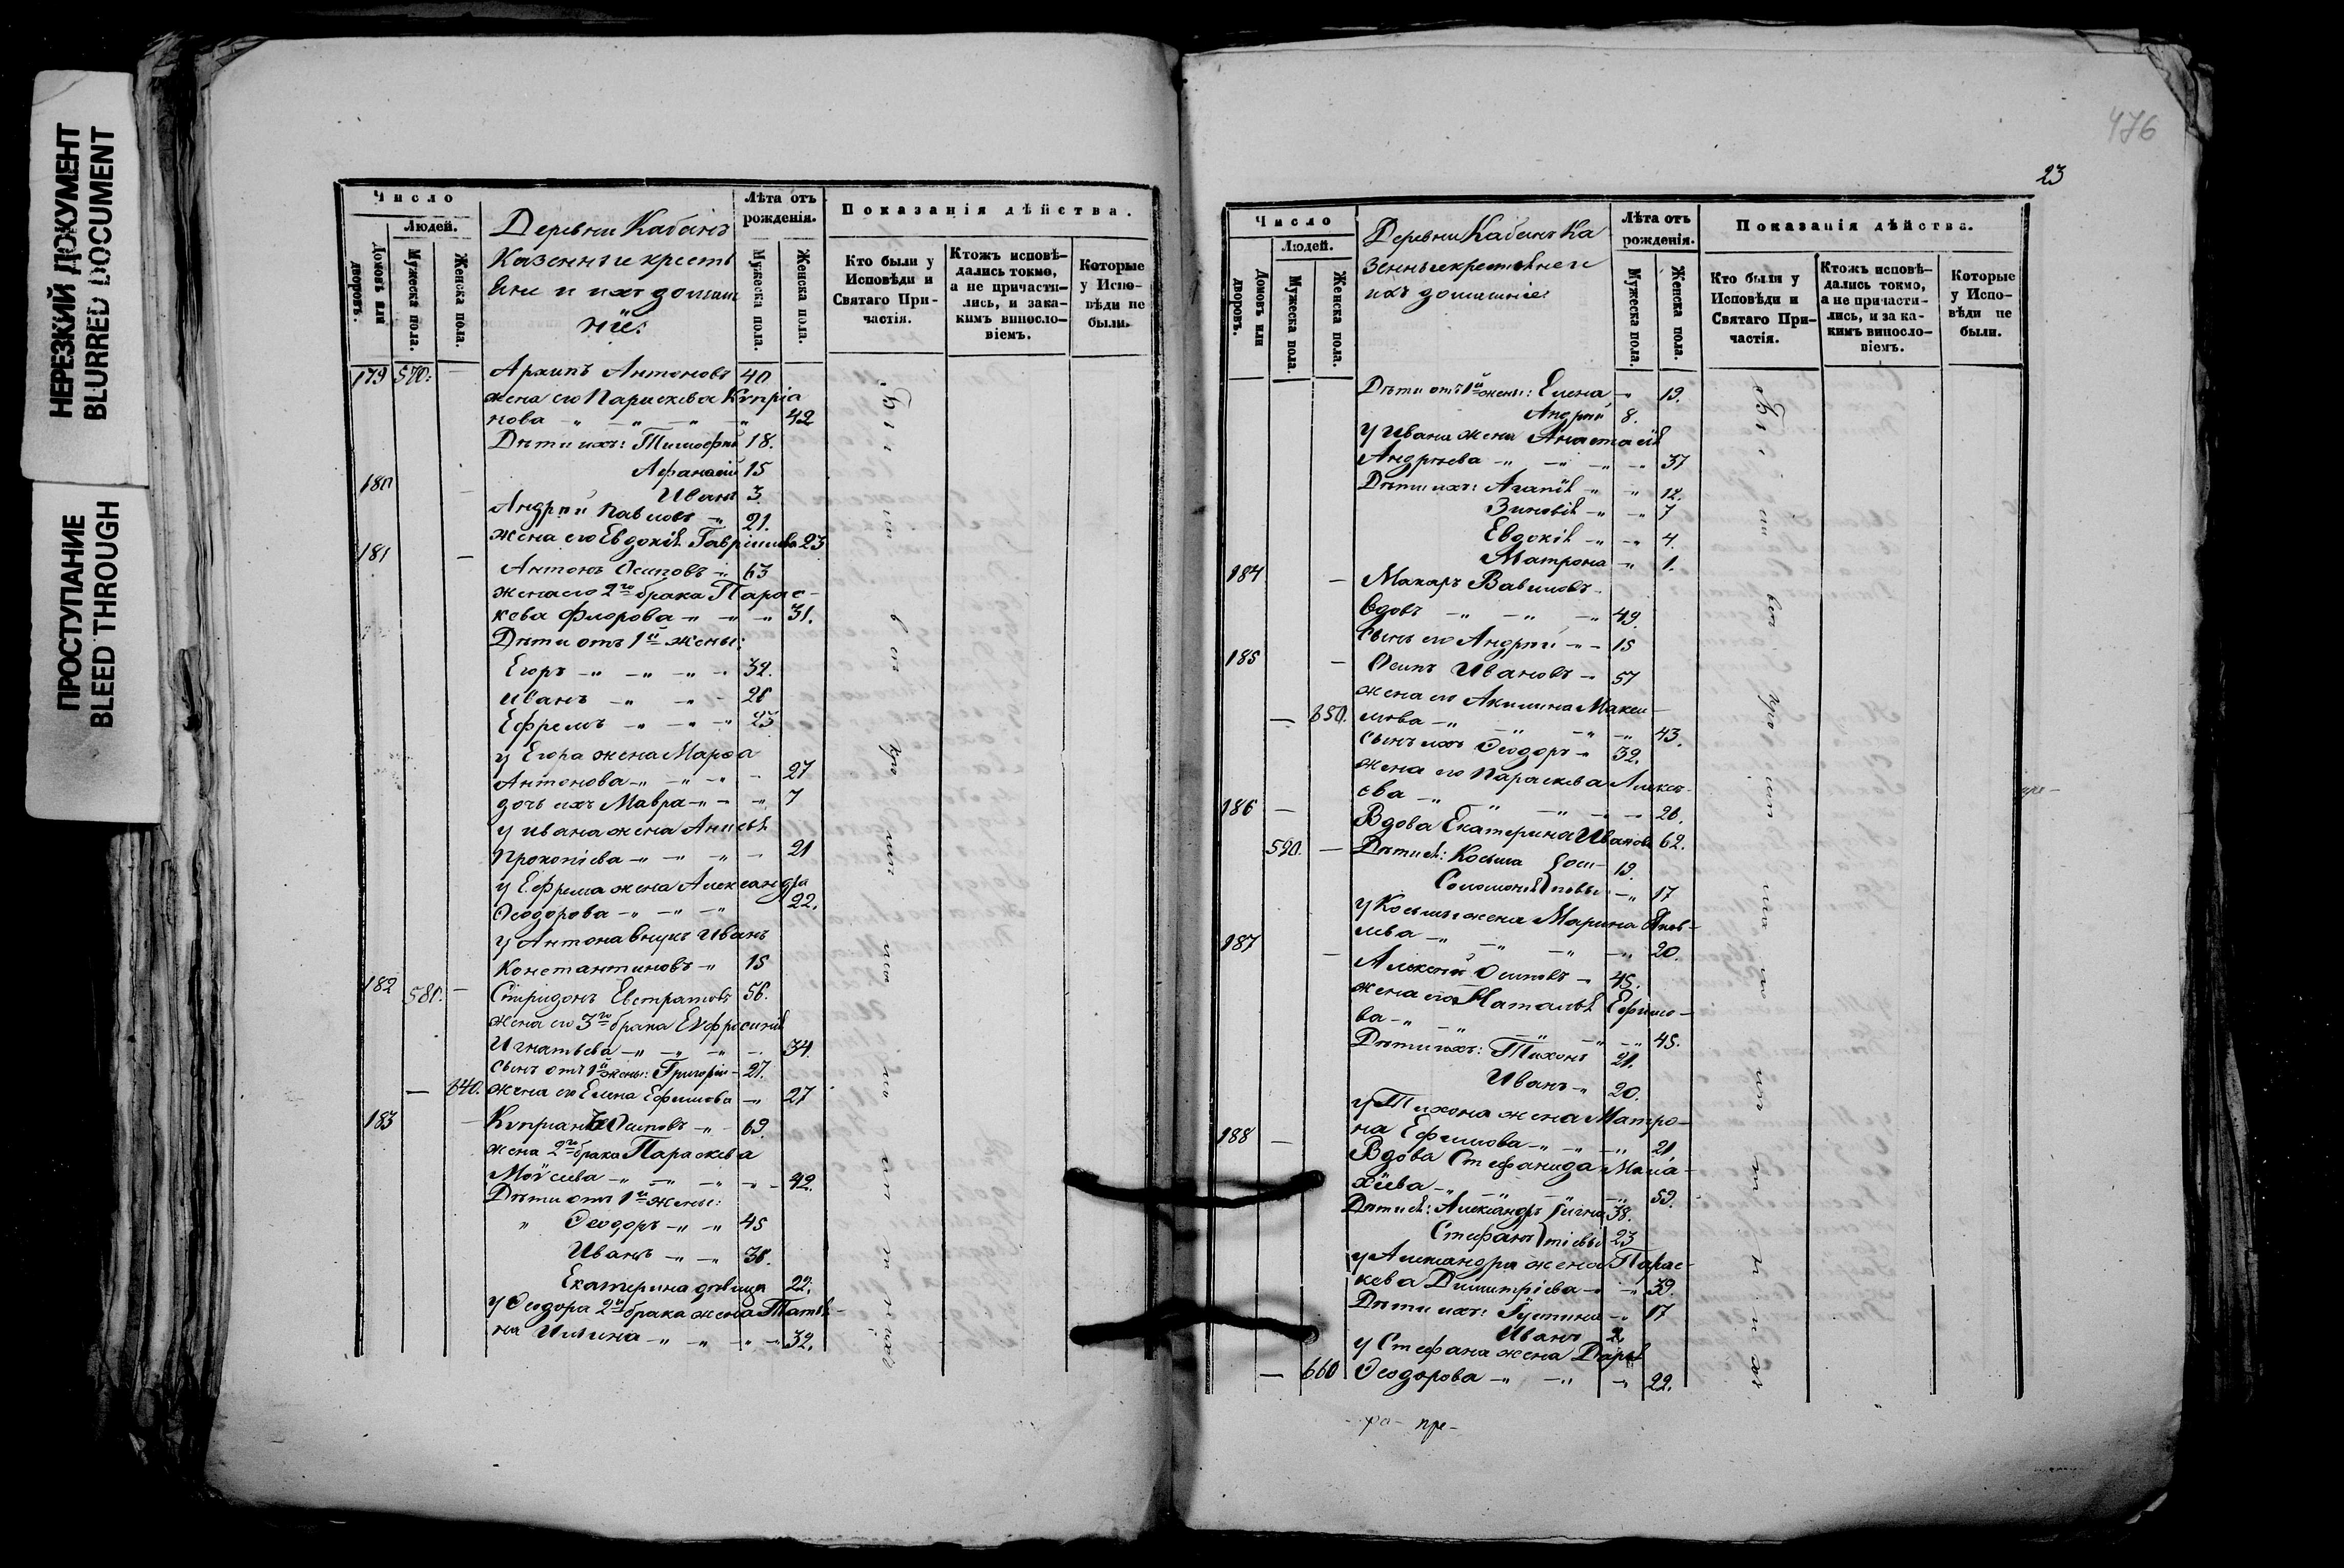 НЕРЕЗКИЙ ДОКУМЕНТ
BLURRED DOCUMENT
ПРОСТУПАНИЕ
BLEED THROUGH
Число
Людей.
Домовъ или дворовъ.
Мужеска пола.
Женска пола.
Деревни Кабанъ
Казенные кресть
яне и ихъ домаш
ніе:
Лѣта отъ рожденія.
Мужеска пола.
Женска пола.
Показанія дѣйства.
Кто были у Исповѣди и Святаго При-
частія.
Ктожъ исповѣ-
дались токмо,
а не причасти-
лись, и зака-
кимъ винosло-
віемъ.
Которые
у Испо-
вѣди не
были.
179 570. — Архипъ Антоновъ 40
жена его Параскева Кѵпріа
нова 42
Дѣти ихъ: Тимофей 18.
Афанасій 15
Иванъ 3
180 — Андрей Павловъ 21.
жена его Евдокія Гавріилова 23
181 — Антонъ Осиповъ 63
жена его 2го брака Парас-
кева Флорова 31.
Дѣти отъ 1й жены:
Егоръ 32.
Иванъ 28
Ефремъ 23
у Егора жена Марѳа
Антонова 27
дочь ихъ Мавра 7
у Ивана жена Анисья
Прокопіева 21
у Ефрема жена Александра
Ѳеодорова 22.
у Антона внукъ Иванъ
Константиновъ 15
182 581. — Спиридонъ Евстратовъ 56.
жена его 3го брака Евфросинія
Игнатьева 34.
сынъ отъ 1й жены: Григорій 27.
— 640. жена его Елена Ефимова 27
183 — Кѵпріанъ Осиповъ 69.
жена 2го брака Параскева
Моѵсеева 42.
Дѣти отъ 1й жены:
Ѳеодоръ 45
Иванъ 38.
Екатерина дѣвица 22.
у Ѳеодора 2го брака жена Татья-
на Ильина 32.
476
23
Число
Людей.
Домовъ или дворовъ.
Мужеска пола.
Женска пола.
Деревни Кабанъ Ка
зенные крестьяне и
ихъ домашніе:
Лѣта отъ рожденія.
Мужеска пола.
Женска пола.
Показанія дѣйства.
Кто были у
Исповѣди и
Святаго При-
частія.
Ктожъ исповѣ-
дались токмо,
а не причасти-
лись, и за ка-
кимъ винoсло-
віемъ.
Которые
у Испо-
вѣди не
были.
Дѣти отъ 1й жены: Елена 19.
Андрей 8.
у Ивана жена Анастасія
Андреева 37
Дѣти ихъ: Агапія 12.
Зиновія 7
Евдокія 4.
Матрона 1.
184 — Макаръ Вавиловъ
вдовъ 49.
сынъ его Андрей 15
185 — Осипъ Ивановъ 57
жена его Акилина Макси-
— 650. мова 43.
сынъ ихъ Ѳеодоръ 32.
жена его Параскева Алексѣ-
ева 26.
186 — Вдова Екатерина Иванова 62.
590. — Дѣти ея: Косьма Оси- 19.
Соломонія повы 17
у Косьмы жена Марина Яков-
лева 20.
187 — Алексей Осиповъ 45.
жена его Наталья Ефимо-
ва 45.
Дѣти ихъ: Тихонъ 21.
Иванъ 20.
у Тихона жена Матро-
на Ефимова 21.
188 — Вдова Стефанида Мала-
хіева 59.
Дѣти ея: Александръ Игна 38.
Стефанъ тіевы 23
у Александра жена Парас-
кева Димитріева 39.
Дѣти ихъ: Іустина 17
Иванъ 2.
у Стефана жена Дарья
— 660 Ѳеодорова 22.